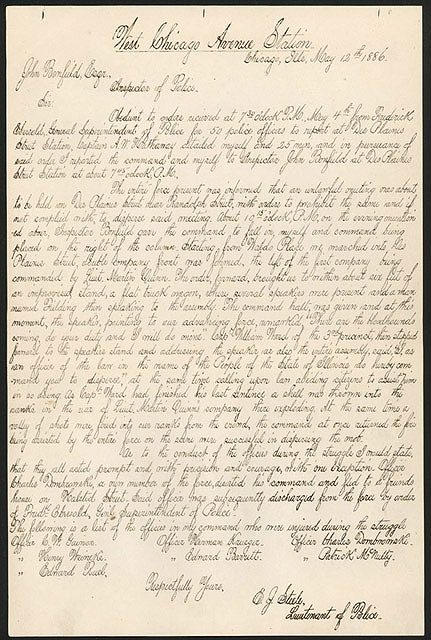 West Chicago Avenue Station.
Chicago, Ills, May 12th 1886.
John Bonfield, Esqr.,
Inspector of Police.
Sir:
Obedient to orders received at 7 o'clock P.M. May 4th from Frederick
Ebersold, General Superintendent of Police for 50 police officers to report at Des Plaines
Street Station, Captain A W Hathaway detailed myself and 25 men, and in pursuance of
said order I reported the command and myself to Inspector John Bonfield at Des Plaines
Street Station at about 7 o'clock P.M.
The entire force present was informed that an unlawful meeting was about
to be held on Des Plaines Street near Randolph Street, with orders to prohibit the same and if
not complied with, to disperse said meeting. About 10 o'clock P.M. on the evening mention
ed above, Inspector Bonfield gave the command to fall in, myself and command being
placed on the right of the column. Starting from Waldo Place we marched into Des
Plaines Street, double company front was formed, the left of the first company being
commanded by Lieut. Martin Quinn. The order, forward, brought us to within about six feet of
an improvised stand, a flat truck wagon, where several speakers were present and a man
named Fielding then speaking to the assembly. The command halt was given and at this
moment, the speaker, pointing to our advancing force, remarked, "There are the bloodhounds
coming, do your duty and I will do mine." Capt William Ward of the 3rd precinct, then stepped
forward to the speakers stand and addressing the speaker, as also the entire assembly, said, "I, as
an officer of the law in the name of the People of the State of Illinois do hereby com-
mand you to disperse," at the same time calling upon law abiding citizens to assist him
in so doing. As Capt Ward had finished his last sentence a shell was thrown into the
ranks in the rear of Lieut. Martin Quinns company there exploding. At the same time a
volley of shots were fired into our ranks from the crowd, the command at once returned the fire
being assisted by the entire force on the scene were successful in dispersing the mob.
As to the conduct of the officers during the struggle I would state,
that they all acted prompt and with precision and courage, with one exception. Officer
Charles Dombrowski, a own member of the force, deserted his command and fled to a friends
house on Halsted Street. Said officer was subsequently discharged from the force by order
of Fredk Ebersold, Genl. Superintendent of Police.
The following is a list of the officers in my command who were injured during the struggle
Officer C. W. Gainor. Officer Herman Krueger. Officer Charles Dombrowski.
" Henry Weineke. " Edward Barrett. " Patrick McNulty.
" Edward Ruel.
Respectfully Yours,
E. J. Steele,
Lieutenant of Police.